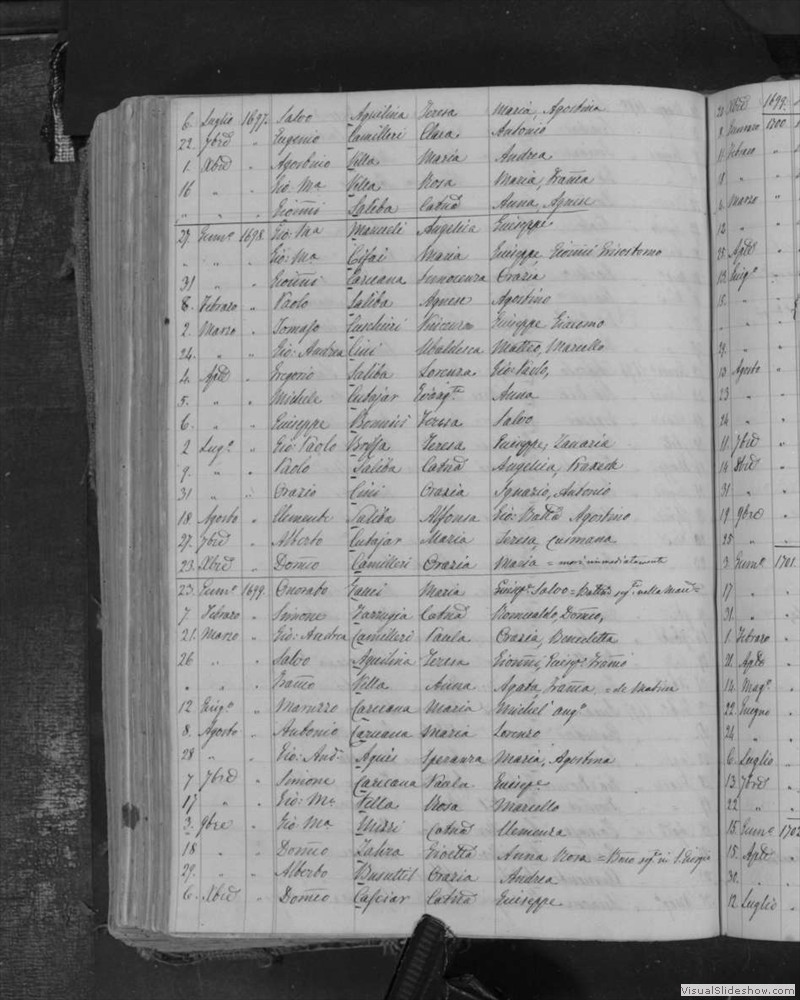 6. Luglio 1697. Salvo Aquilina Teresa Maria, Agostina
22. 7bre " Eugenio Camilleri Clara Antonio
1. Xbre " Agostino Vella Maria Andrea
16 " " Gio: Ma Vella Rosa Maria, Franca
" " " Gioñi Saliba Catna Anna, Agnese
27. Genn° 1698. Gio: Ma Mamueli Angelica Giuseppe
" " " Gio: Ma Maria Giuseppe Gionni Grisostomo
31 " " Gioñi Caruana Innocenza Grazia
8. Febraro " Paolo Saliba Agnese Agostino
2. Marzo " Tomaso Cuschieri Vincenza Giuseppe Giacomo
24. " " Gio: Andrea Cini Ubaldesca Matteo, Marcello
4. Aple " Gregorio Saliba Lorenza Gio: Paolo,
5. " " Michele Cutajar Anna
6. " " Giuseppe Bonnici Teresa Salvo
2 Lug° " Gio Paolo Teresa Giuseppe, Zanaria
9. " " Paolo Saliba Catna Angelica,
31 " " Orazio Cini Grazia Ignazio, Antonio
18. Agosto " Clemente Saliba Alfonsa Gio: Batta Agostino
27. 7bre " Alberto Cutajar Maria Teresa,
23. Xbre " Domco Camilleri Grazia Maria = morì immediatamente
23. Genn° 1699. Onorato Maria Giusp° Salvo =
7. Febraro " Simone Farrugia Catna Romualdo, Domco,
21. Marzo " Gio: Andrea Camilleri Paula Grazia, Benedetta
26 " " Salvo Aquilina Teresa Gionni, Giusp° Franco
" " " Franco Vella Anna Agata, Franca,
12 Giug° " Caruana Maria Michel' ang°
8. Agosto " Antonio Caruana Maria Lorenzo
28 " " Gio: And: Agius Speranza Maria, Agostina
7 7bre " Simone Caruana Paula Giusepe
17 " " Gio: Ma Vella Rosa Marcello
3. 9bre " Gio Ma Catna Clemenza
18 " " Domco Zahra Anna Rosa =
29. " " Alberto Busuttil Grazia Andrea
6. Xbre " Domco Casciar Catna Giuseppe
21 Xbre 1699.
8 Gennaro 1700.
11 Febraro "
18 " "
4 Marzo "
12 " "
25 Aple "
13 Giug° "
18. " "
" "
29. " "
10 Agosto "
23 " "
24 " "
11. 7bre "
14. 8bre "
31 " "
19. 9bre "
25 " "
3. Genn° 1701.
17 " "
31. " "
1. Febraro "
21. Aple "
14. Mag° "
22. Giugno "
24 " "
6 Luglio "
13. 7bre "
22 " "
15. Genn° 1702
15. Aple "
30. " "
12. Luglio "
VisualSlideshow.com